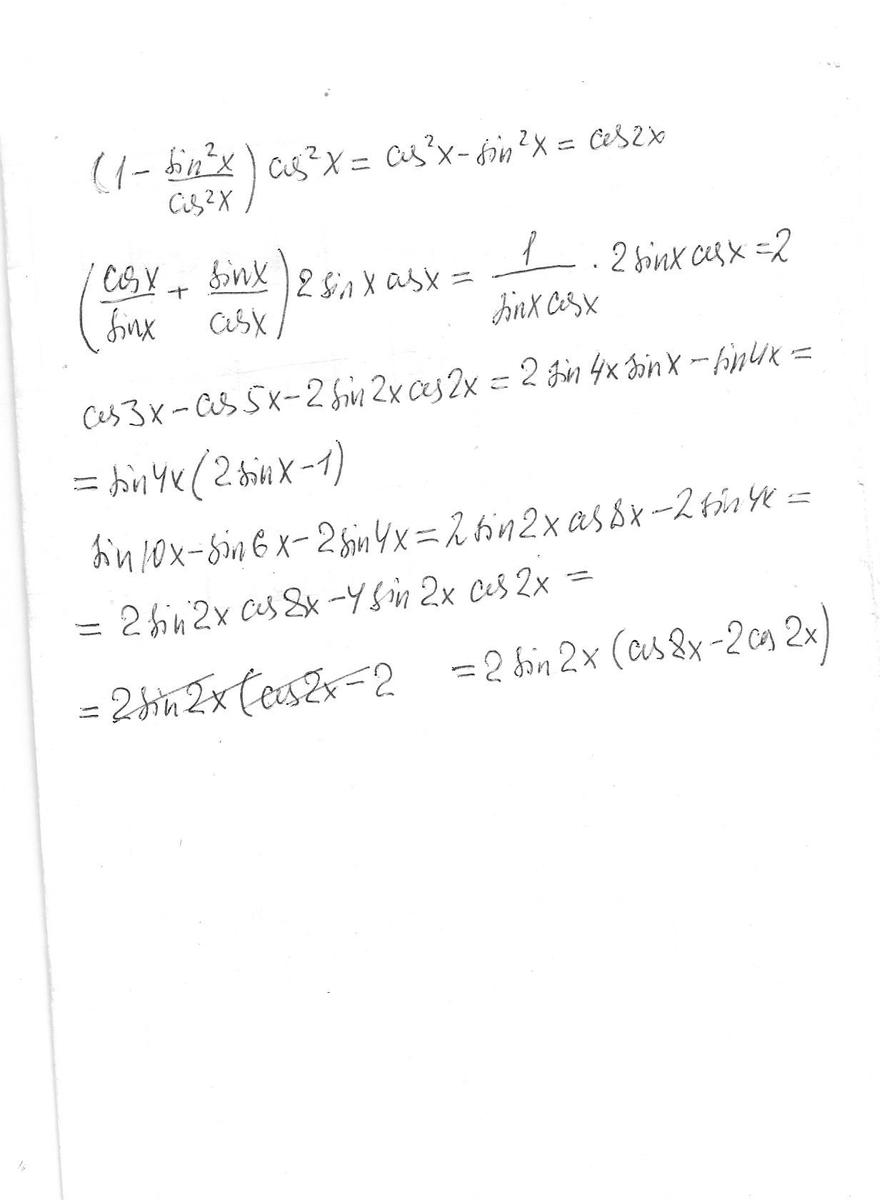 (1 - sin²x/cos²x) cos²x = cos²x - sin²x = cos2x
(cosx/sinx + sinx/cosx) 2 sin x cosx = 1/(sinx cosx) · 2 sinx cosx = 2
cos3x - cos5x - 2 sin2x cos2x = 2 sin4x sinx - sin4x =
= sin4x (2 sinx - 1)
sin10x - sin6x - 2 sin4x = 2 sin2x cos8x - 2 sin4x =
= 2 sin2x cos8x - 4 sin2x cos2x =
= 2 sin2x (cos2x - 2 = 2 sin2x (cos8x - 2 cos2x)